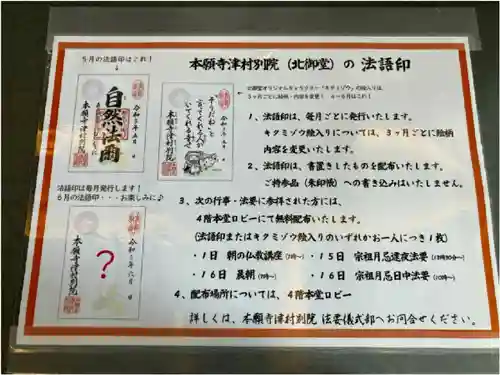 5月の法語印はこれ！
本願寺津村別院（北御堂）の 法語印
自然法爾
本願寺津村別院
そうだねと
言ってくれる人が
いてくれる幸せ
本願寺津村別院
1、法語印は、毎月ごとに発行いたします。
キタミゾウ絵入りについては、3ヶ月ごとに絵柄
内容を変更いたします。
2、法語印は、書置きしたものを配布いたします。
ご持参品（朱印帳）への書き込みはいたしません。
法語印は毎月発行します！
6月の法語印・・・お楽しみに♪
？
令和5年六月
日
本願寺津村別院
3、次の行事・法要に参拝された方には、
4階本堂ロビーにて無料配布いたします。
（法語印またはキタミゾウ絵入りのいずれかお一人につき1枚）
・1日 朝の仏教講座（7時～）
・15日 宗祖月忌逮夜法要（13時30分～）
・16日 晨朝（7時～）
・16日 宗祖月忌日中法要（10時～）
4、配布場所については、4階本堂ロビー
詳しくは、本願寺津村別院 法要儀式部へお問合せください。